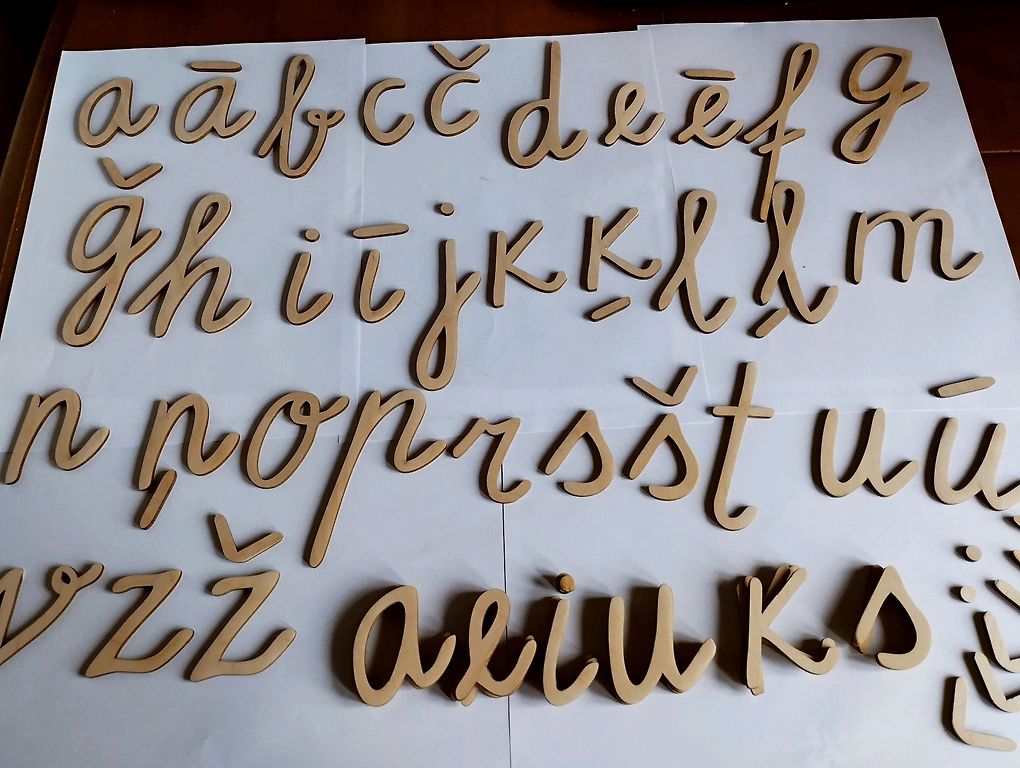 a ā b c č d e ē f g
ǧ h i ī j k ķ l ļ m
n ņ o p r s š t u ū
v z ž a e i u k s